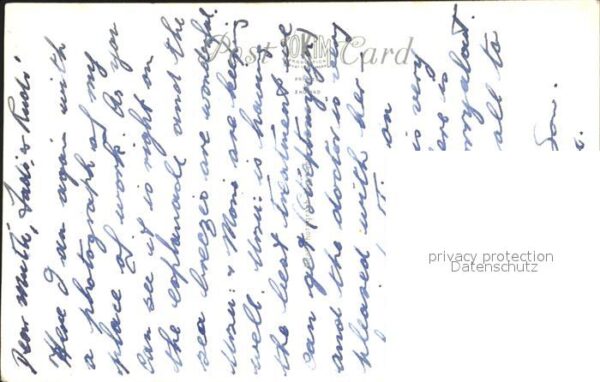 Dear Muth, Ladi, & Rudi,
Here I am again with
a photograph of my
place of work. As you
can see it is right on
the esplanade and the
sea breezes are wonderful.
& Mono are keeping
well. is having
the best treatment she
can get, streptomycin,
and the doctor is very
pleased with her —
on
is very
is
all to
Post Card
privacy protection
Datenschutz